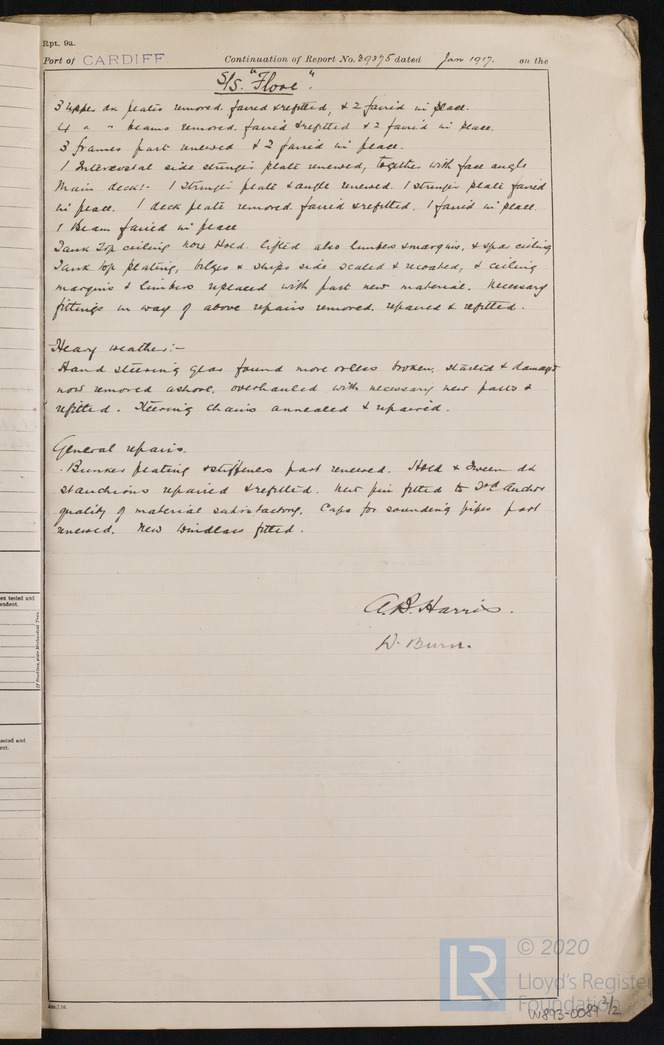 Rpt. 9a.
Port of CARDIFF Continuation of Report No. 39375 dated Jan 1917. on the
S/S. "Flore".
3 upper dk plates removed faired & refitted, & 2 faired in place.
4 " " beams removed faired & refitted & 2 faired in place.
3 frames part renewed & 2 faired in place.
1 Intercostal side stringer plate renewed, together with face angle
Main deck:- 1 Stringer plate & angle renewed. 1 stringer plate faired
in place. 1 deck plate removed faired & refitted. 1 faired in place.
1 Beam faired in place
Tank Top ceiling now Hold lifted also limbers & margins, & spar ceiling
Tank top plating, bilges & ships side scaled & recoated, & ceiling
margins & limbers replaced with part new material. Necessary
fittings in way of above repairs removed, repaired & refitted.
Heavy weather:-
Hand steering gear found more or less broken, started & damaged
now removed ashore, overhauled with necessary new parts &
refitted. Steering chains annealed & repaired.
General repairs.
Bunker plating & stiffeners part renewed. Hold & Tween dk
stanchions repaired & refitted. New pin fitted to 2nd Anchor
quality of material satisfactory. Caps for sounding pipes part
renewed. New Windlass fitted.
A. B. Harris.
D. Burn.
LR
© 2020
Lloyd's Register
Foundation
W893-0089 2/2